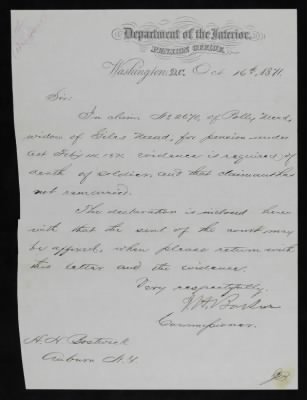 Department of the Interior,
PENSION OFFICE,
Washington, D.C. Oct 16th, 1871.
Sir:
In claim No 2671, of Polly Mead,
widow of Giles Mead, for pension under
act Feby 14. 1871 evidence is required of
death of soldier, and that claimant has
not remarried.
The declaration is inclosed here
with that the seal of the court may
be affixed, when please return with
this letter and the evidence.
Very respectfully,
J H Baker
Commissioner.
H. H. Bostwick
Auburn N.Y.